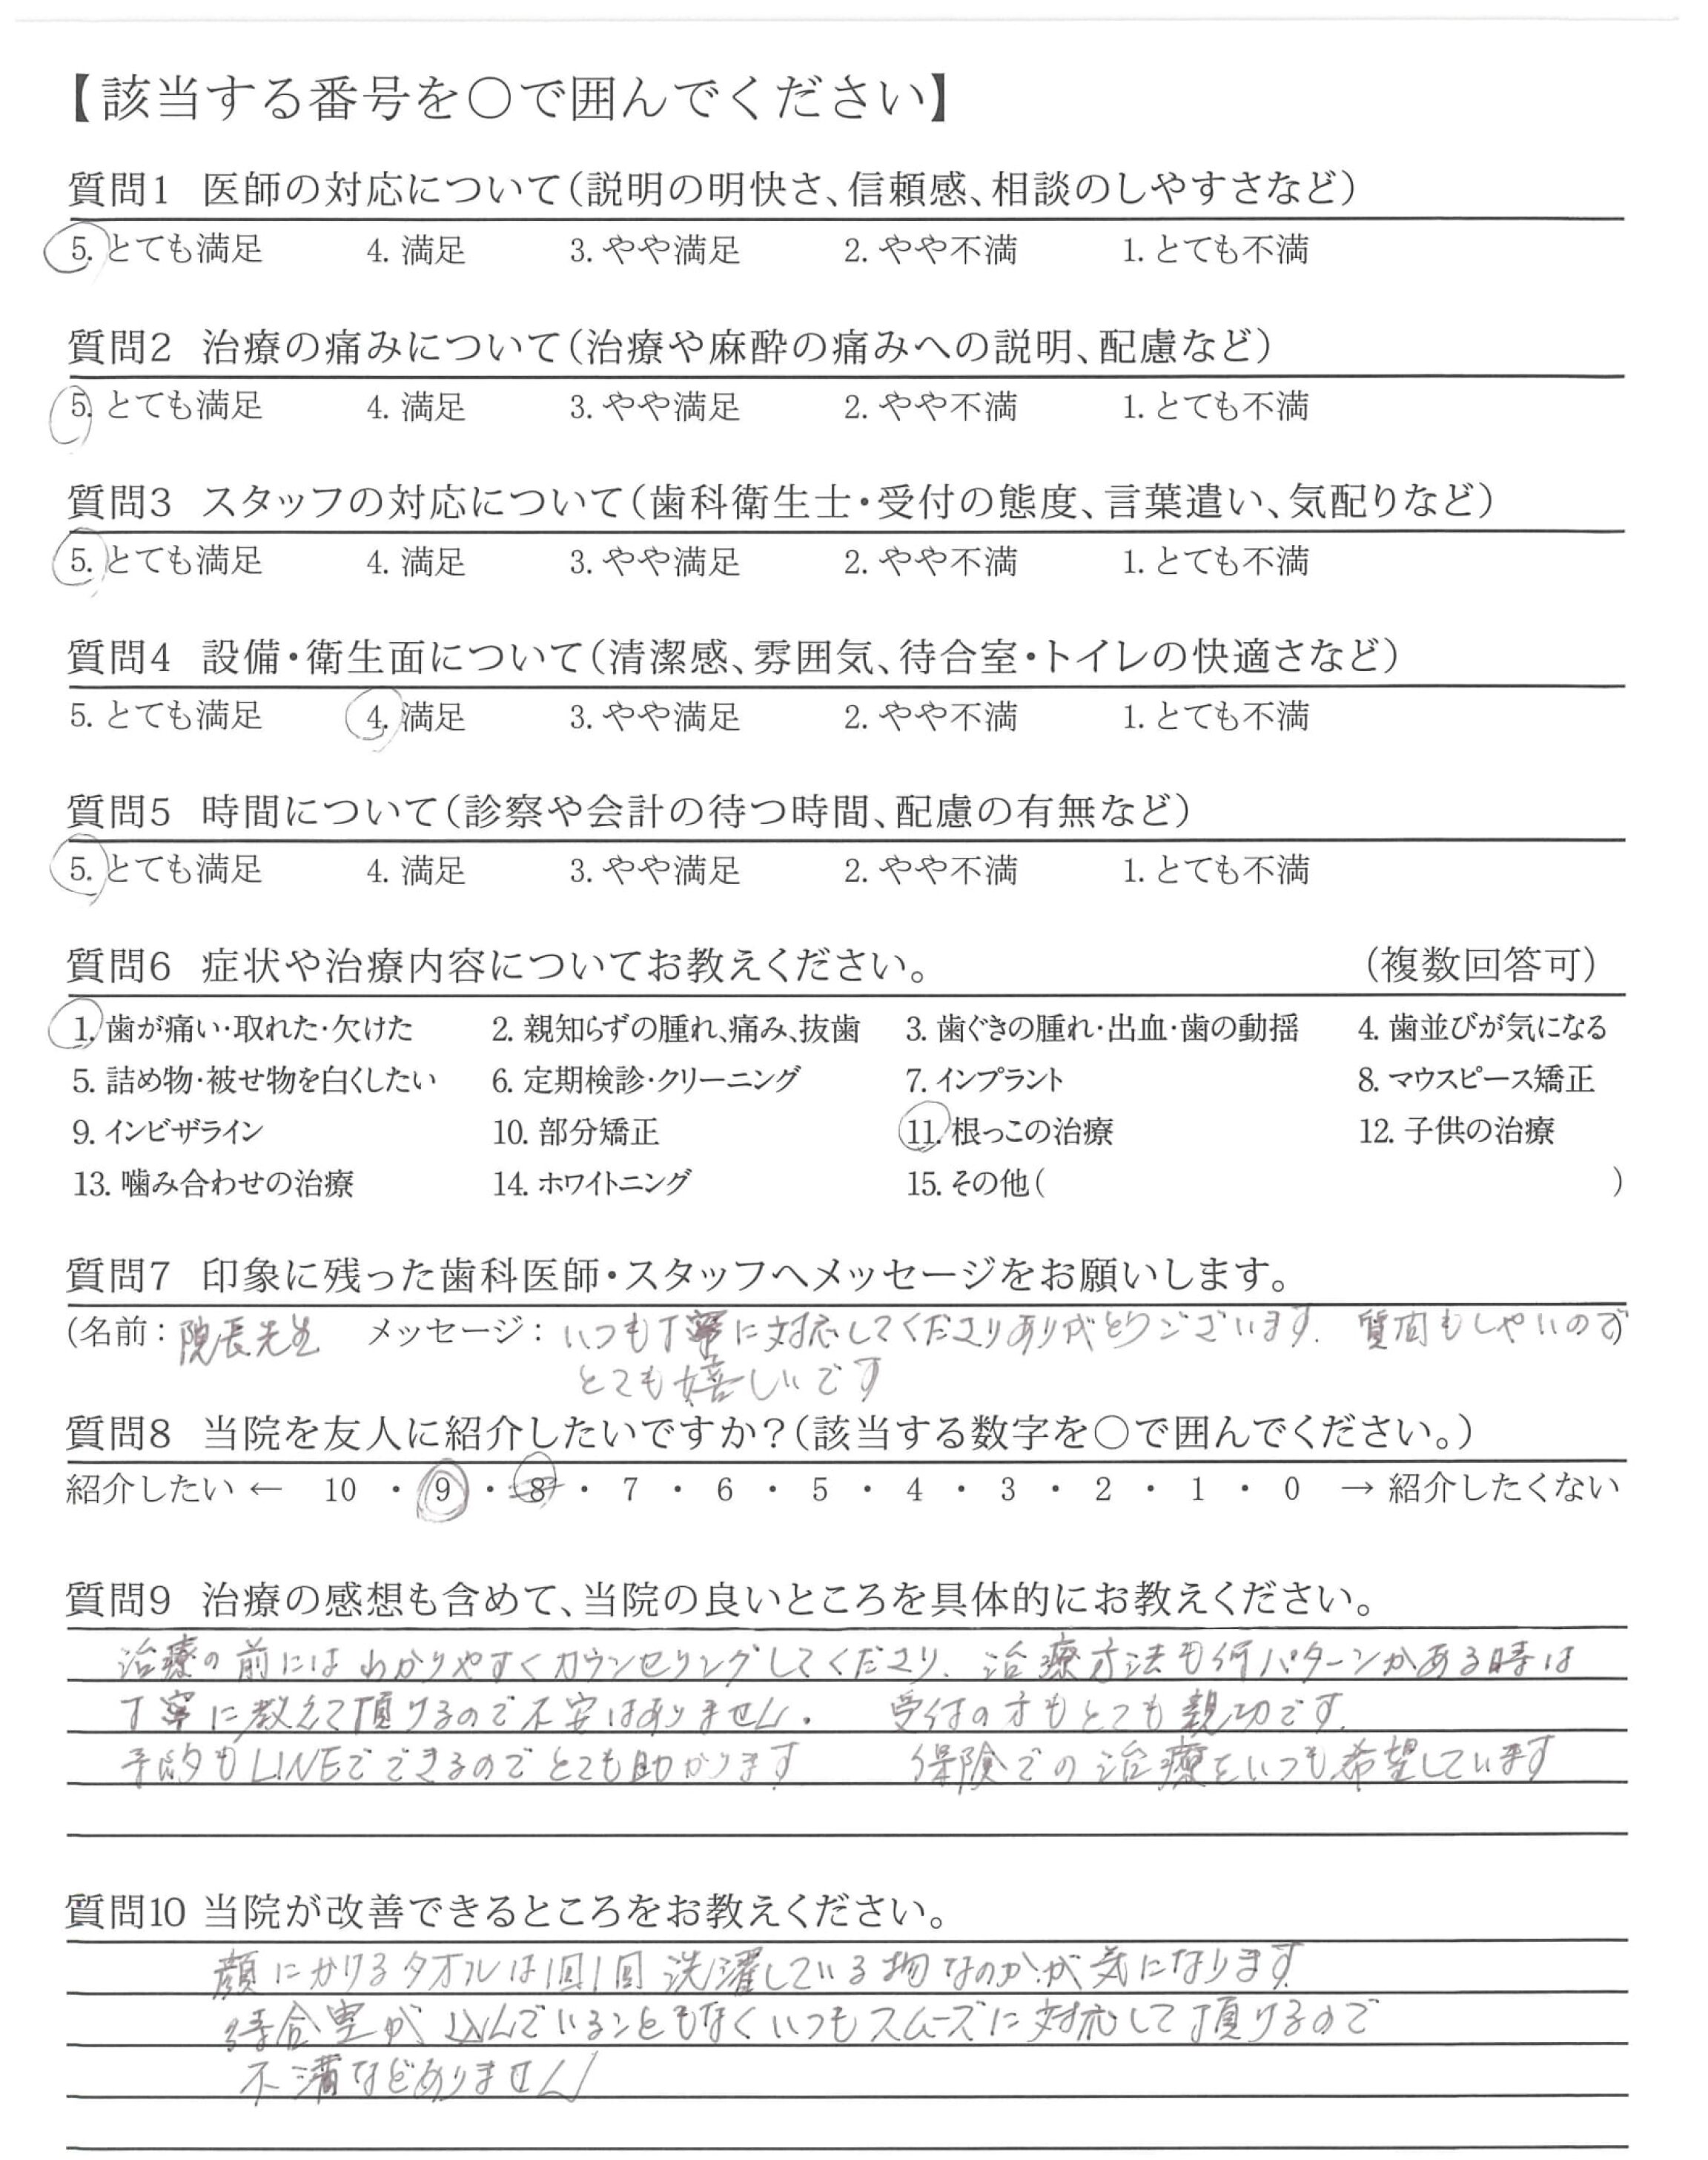 【該当する番号を○で囲んでください】
質問1 医師の対応について(説明の明快さ、信頼感、相談のしやすさなど)
5. とても満足 4. 満足 3. やや満足 2. やや不満 1. とても不満
質問2 治療の痛みについて(治療や麻酔の痛みへの説明、配慮など)
5. とても満足 4. 満足 3. やや満足 2. やや不満 1. とても不満
質問3 スタッフの対応について(歯科衛生士・受付の態度、言葉遣い、気配りなど)
5. とても満足 4. 満足 3. やや満足 2. やや不満 1. とても不満
質問4 設備・衛生面について(清潔感、雰囲気、待合室・トイレの快適さなど)
5. とても満足 4. 満足 3. やや満足 2. やや不満 1. とても不満
質問5 時間について(診察や会計の待つ時間、配慮の有無など)
5. とても満足 4. 満足 3. やや満足 2. やや不満 1. とても不満
質問6 症状や治療内容についてお教えください。 (複数回答可)
1. 歯が痛い・取れた・欠けた 2. 親知らずの腫れ、痛み、抜歯 3. 歯ぐきの腫れ・出血・歯の動揺 4. 歯並びが気になる
5. 詰め物・被せ物を白くしたい 6. 定期検診・クリーニング 7. インプラント 8. マウスピース矯正
9. インビザライン 10. 部分矯正 11. 根っこの治療 12. 子供の治療
13. 噛み合わせの治療 14. ホワイトニング 15. その他( )
質問7 印象に残った歯科医師・スタッフへメッセージをお願いします。
(名前：院長先生 メッセージ：いつも丁寧に対応してくださりありがとうございます. 質問もしやいので)
とても嬉しいです
質問8 当院を友人に紹介したいですか？(該当する数字を○で囲んでください。)
紹介したい ← 10 ・ 9 ・ 8 ・ 7 ・ 6 ・ 5 ・ 4 ・ 3 ・ 2 ・ 1 ・ 0 → 紹介したくない
質問9 治療の感想も含めて、当院の良いところを具体的にお教えください。
治療の前にはわかりやすくカウンセリングしてくださり、治療方法も何パターンかある時は
丁寧に教えて頂けるので不安はありません. 受付の方もとても親切です.
予約もLINEでできるのでとても助かります 保険での治療をいつも希望しています
質問10 当院が改善できるところをお教えください。
顔にかけるタオルは1回1回洗濯している物なのかが気になります
待合室が込んでいることもなくいつもスムーズに対応して頂けるので
不満などありません